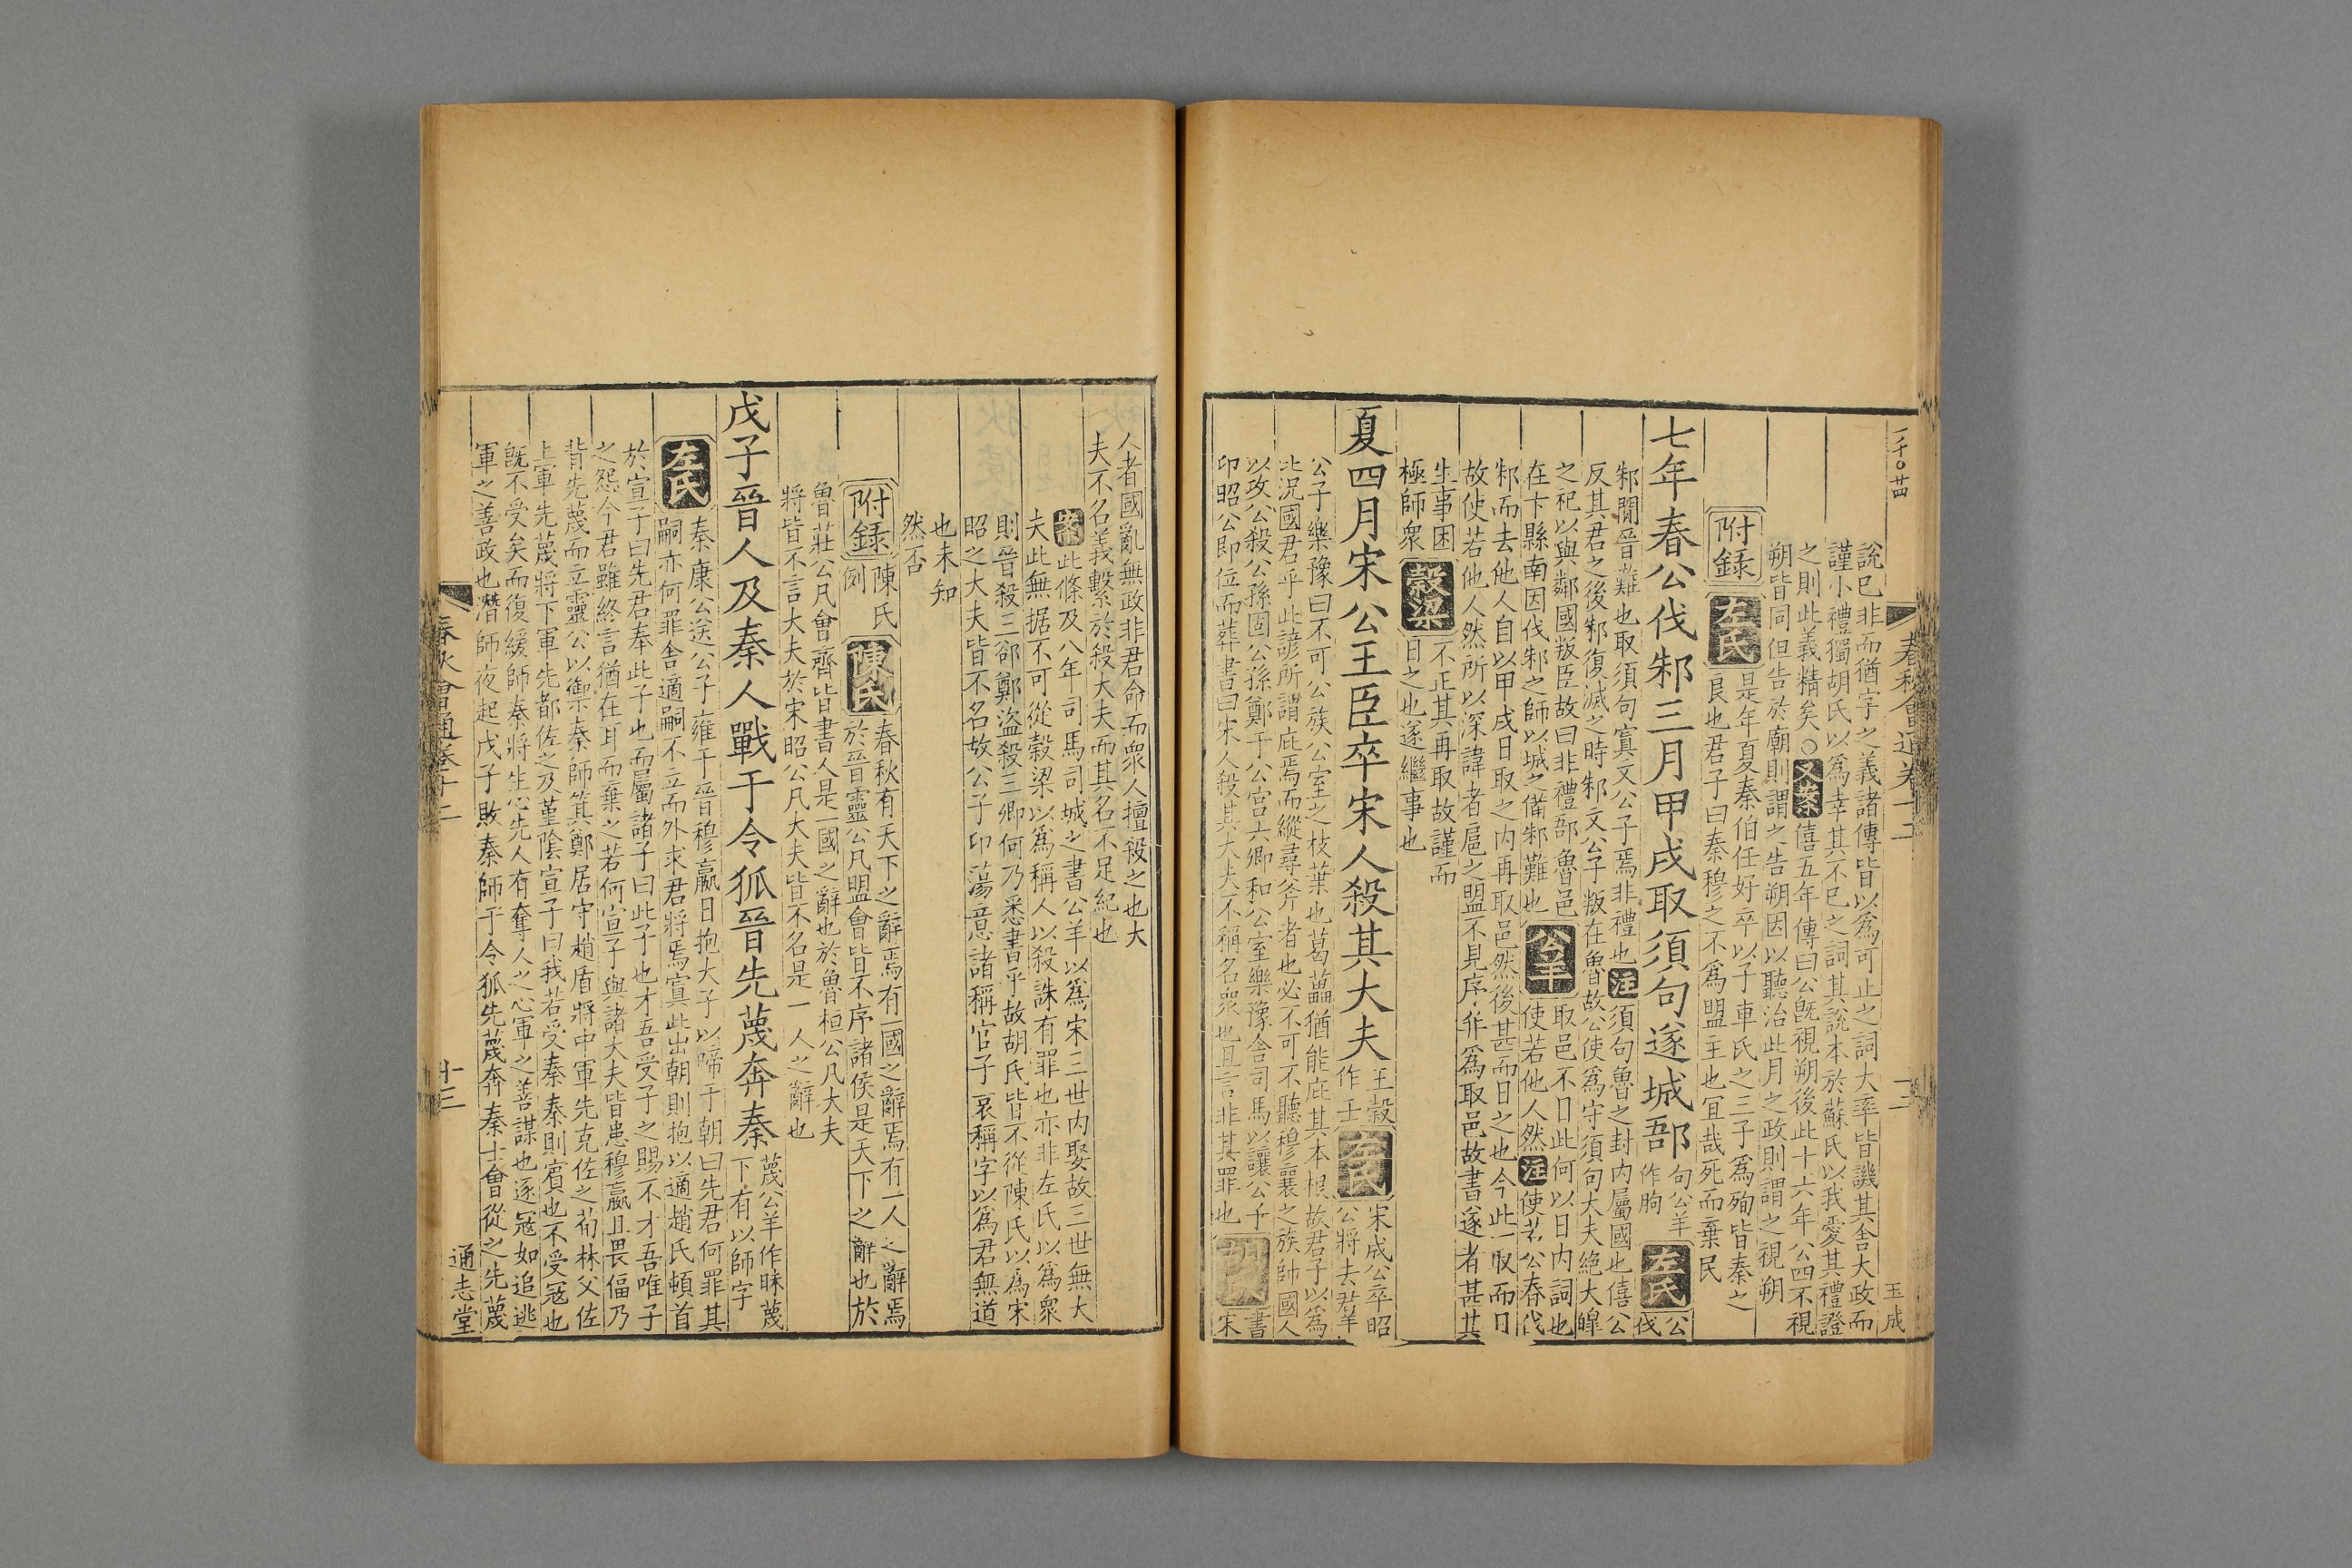 一千○廿四
春秋會通卷十二
十二
玉成
說已非而猶字之義諸傳皆以為可止之詞大率皆譏其舍大政而
謹小禮獨胡氏以為幸其不已之詞其說本於蘇氏以我愛其禮證
之則此義精矣○又案僖五年傳曰公旣視朔後此十六年公四不視
朔皆同但告於廟則謂之告朔因以聽治此月之政則謂之視朔
附錄
左氏
是年夏秦伯任好卒以子車氏之三子為殉皆秦之
良也君子曰秦穆之不為盟主也宜哉死而棄民
七年春公伐邾三月甲戌取須句遂城郚
句公羊
作朐
左氏
公
伐
邾閒晉難也取須句寘文公子焉非禮也注須句魯之封内屬國也僖公
反其君之後邾復滅之時邾文公子叛在魯故公使為守須句大夫絕大皥
之祀以與鄰國叛臣故曰非禮郚魯邑
在卞縣南因伐邾之師以城之備邾難也
公羊
取邑不日此何以日内詞也
使若他人然注使若公春伐
邾而去他人自以甲戌日取之内再取邑然後甚而日之也今此一取而日
故使若他人然所以深諱者扈之盟不見序并為取邑故書遂者甚其
生事困
極師眾
穀梁
不正其再取故謹而
日之也遂繼事也
夏四月宋公王臣卒宋人殺其大夫
王穀
作壬
左氏
宋成公卒昭
公將去羣
公子樂豫曰不可公族公室之枝葉也葛藟猶能庇其本根故君子以為
比况國君乎此諺所謂庇焉而縱尋斧者也必不可不聽穆襄之族帥國人
以攻公殺公孫固公孫鄭于公宮六卿和公室樂豫舍司馬以讓公子
卬昭公即位而葬書曰宋人殺其大夫不稱名眾也且言非其罪也
胡氏
書
宋
人者國亂無政非君命而衆人擅殺之也大
夫不名義繫於殺大夫而其名不足紀也
案此條及八年司馬司城之書公羊以為宋三世内娶故三世無大
夫此無据不可從穀梁以為稱人以殺誅有罪也亦非左氏以為衆
則晉殺三郤鄭盜殺三卿何乃悉書乎故胡氏皆不從陳氏以為宋
昭之大夫皆不名故公子卬蕩意諸稱官子哀稱字以為君無道
也未知
然否
附錄
陳氏
例
陳氏
春秋有天下之辭焉有一國之辭焉有一人之辭焉
於晉靈公凡盟會皆不序諸侯是天下之辭也於
魯莊公凡會齊皆書人是一國之辭也於魯桓公凡大夫
將皆不言大夫於宋昭公凡大夫皆不名是一人之辭也
戊子晉人及秦人戰于令狐晉先蔑奔秦
蔑公羊作昧蔑
下有以師字
左氏
秦康公送公子雍于晉穆嬴日抱大子以啼于朝曰先君何罪其
嗣亦何罪舍適嗣不立而外求君將焉寘此出朝則抱以適趙氏頓首
於宣子曰先君奉此子也而屬諸子曰此子也才吾受子之賜不才吾唯子
之怨今君雖終言猶在耳而棄之若何宣子與諸大夫皆患穆嬴且畏偪乃
背先蔑而立靈公以御秦師箕鄭居守趙盾將中軍先克佐之荀林父佐
上軍先蔑將下軍先都佐之及堇陰宣子曰我若受秦秦則賓也不受寇也
旣不受矣而復緩師秦將生心先人有奪人之心軍之善謀也逐寇如追逃
軍之善政也潛師夜起戊子敗秦師于令狐先蔑奔秦士會從之先蔑
春秋會通卷十二
十三
通志堂